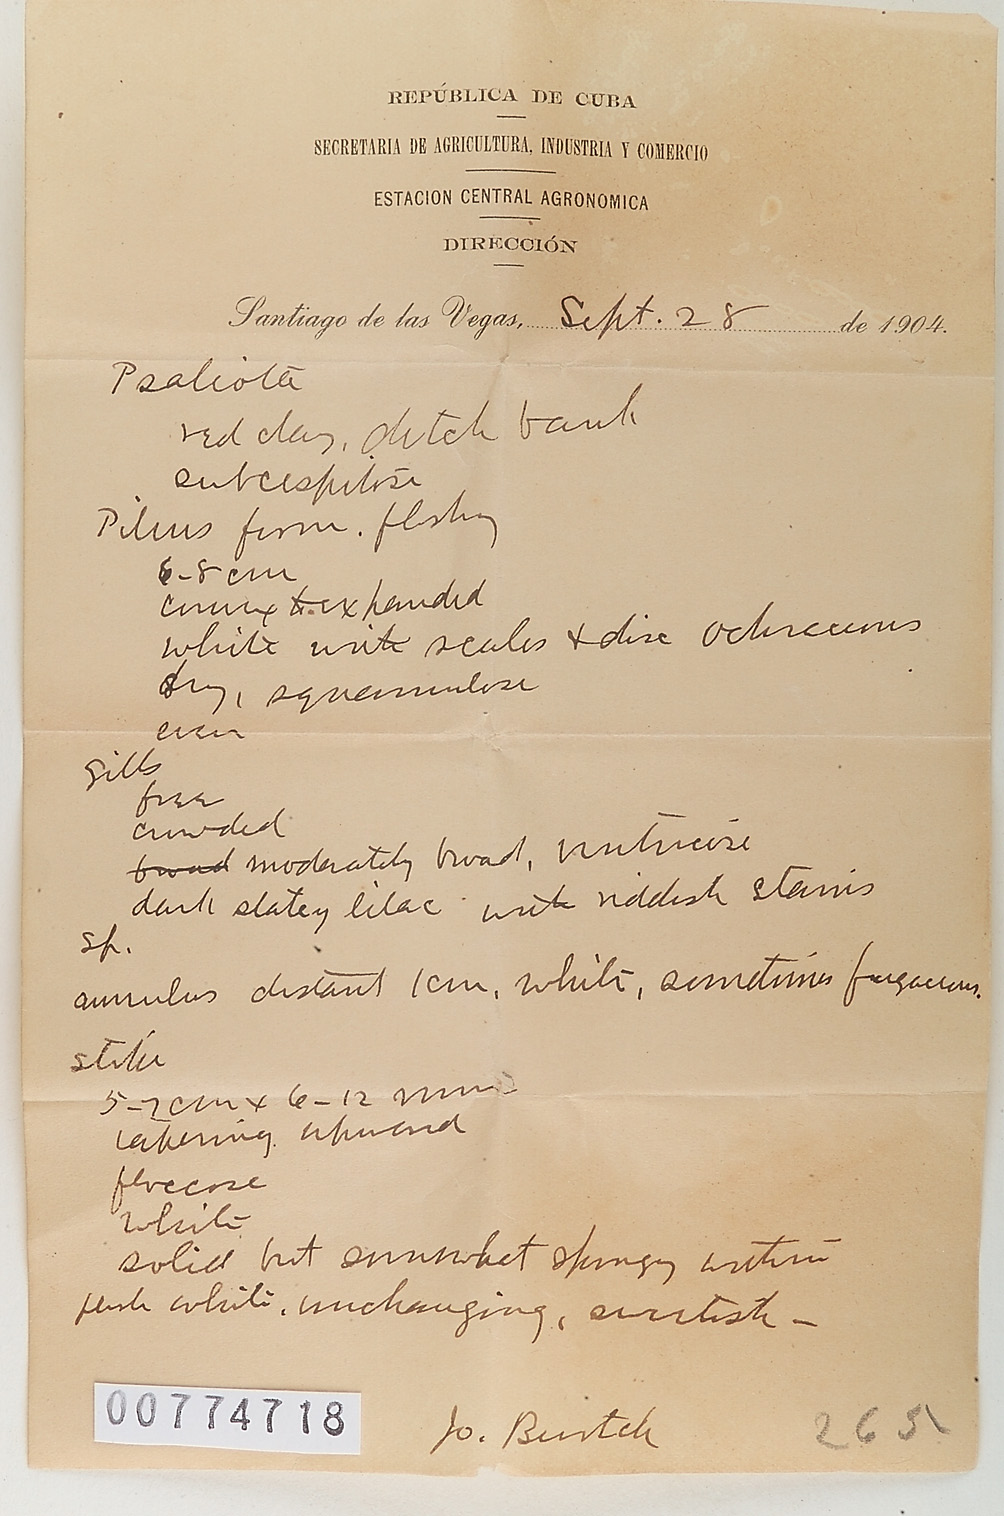 REPÚBLICA DE CUBA
SECRETARIA DE AGRICULTURA, INDUSTRIA Y COMERCIO
ESTACION CENTRAL AGRONOMICA
DIRECCIÓN
Santiago de las Vegas, Sept. 28 de 1904.
Psaliota
red clay, ditch bank
subcespitose
Pileus firm. fleshy
6-8 cm
convex to expanded
white with scales & disc ochraceous
dry, squamulose
even
gills
free
crowded
broad moderately broad, ventricose
dark slatey lilac with reddish stains
sp.
annulus distant 1cm, white, sometimes fugaceous.
stipe
5-7 cm x 6-12 mm
tapering upward
floccose
white
solid but somewhat spongy within
flesh white, unchanging, sweetish -
00774718
265